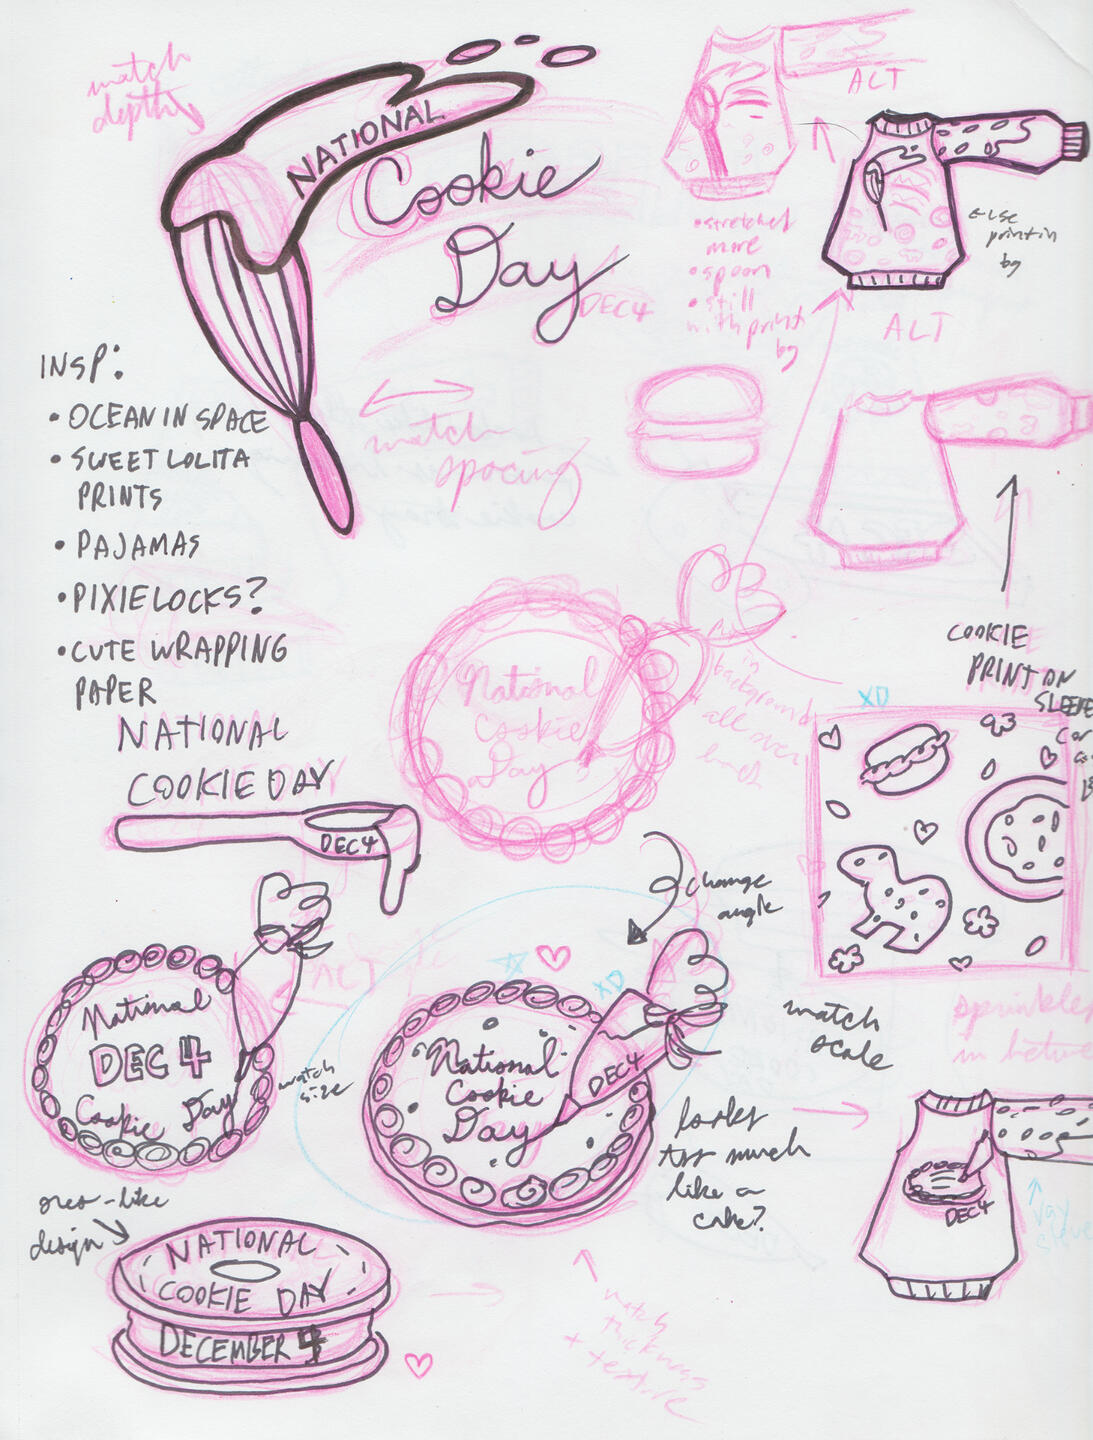 match
depth
NATIONAL
Cookie
Day
DEC 4
ALT
• stretched
more
• spoon
• still
with print
bg
print in
bg
ALT
INSP:
• OCEAN IN SPACE
• SWEET LOLITA
PRINTS
• PAJAMAS
• PIXIELOCKS?
• CUTE WRAPPING
PAPER
match
spacing
COOKIE
PRINT ON
SLEEVE
National
Cookie
Day
in
background
all over
XD
NATIONAL
COOKIE DAY
DEC 4
change
angle
ALT
National
DEC 4
Cookie Day
match
size
XD
National
Cookie
Day
DEC 4
match
scale
sprinkles
in between
looks
too much
like a
cake?
DEC 4
oreo-like
design
NATIONAL
COOKIE DAY
DECEMBER 4
match
thickness
+ texture